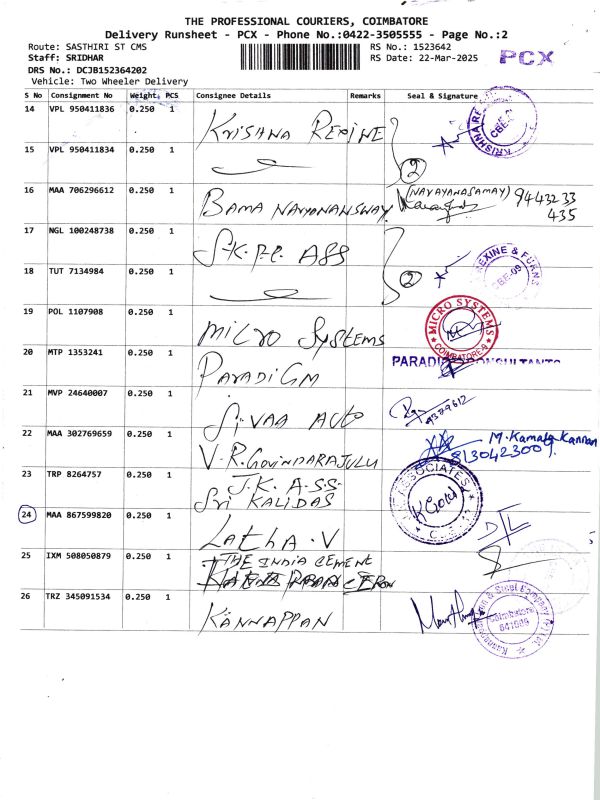 THE PROFESSIONAL COURIERS, COIMBATORE
Delivery Runsheet - PCX - Phone No.:0422-3505555 - Page No.:2
Route: SASTHIRI ST CMS
RS No.: 1523642
Staff: SRIDHAR
RS Date: 22-Mar-2025
PCX
DRS No.: DCJB152364202
Vehicle: Two Wheeler Delivery
S No Consignment No Weight PCS Consignee Details Remarks Seal & Signature
14 VPL 950411836 0.250 1 KRISHNA REXINE
15 VPL 950411834 0.250 1
2
16 MAA 706296612 0.250 1 BAMA NARYANANSWAY (NARAYANASAMAY) 9443233
435
17 NGL 100248738 0.250 1 S.K.P.C. ASS
18 TUT 7134984 0.250 1
2
REXINE & FURNS
CBE-09
19 POL 1107908 0.250 1 MICRO SYSTEMS
MICRO SYSTEMS
COIMBATORE-9
20 MTP 1353241 0.250 1 PARADIGM
PARADI CONSULTANTS
21 MVP 24640007 0.250 1 SIVAA AUTO
9379612
22 MAA 302769659 0.250 1 V.R.GOVINDARAJULU
M.Kamala Kannan
8130423009
23 TRP 8264757 0.250 1 J.K. A.S.S.
SRI KALIDAS
ASSOCIATES
24 MAA 867599820 0.250 1 LATHA.V D/L
25 IXM 508050879 0.250 1 THE INDIA CEMENT
26 TRZ 345091534 0.250 1 KANNAPPAN
& Steel Company
Coimbatore
641009